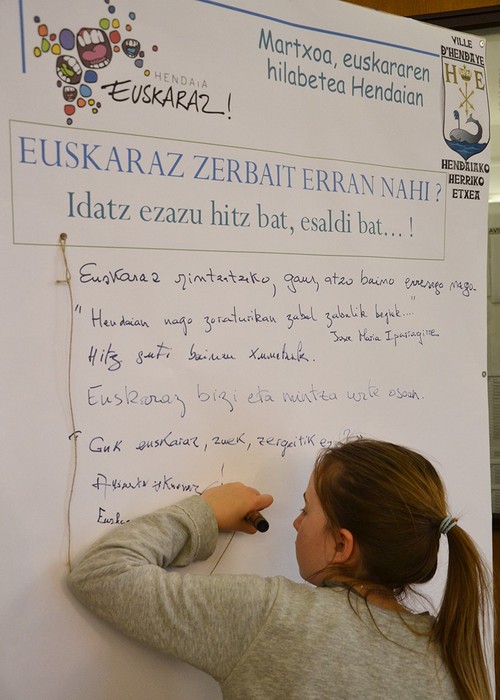 HENDAIA
EUSKARAZ!
Martxoa, euskararen
hilabetea Hendaian
VILLE
D'HENDAYE
H E
HENDAIAKO
HERRIKO
ETXEA
EUSKARAZ ZERBAIT ERRAN NAHI ?
Idatz ezazu hitz bat, esaldi bat... !
Euskaraz mintzatzeko, gaur atzo baino errexego nago.
"Hendaian nago zoraturikan zabal zabalik begiak..."
Jose Maria Iparragirre
Hitz guti bainan xuxenak.
Euskaraz bizi eta mintza urte osoan.
"Guk euskaraz, zuek, zergatik ez